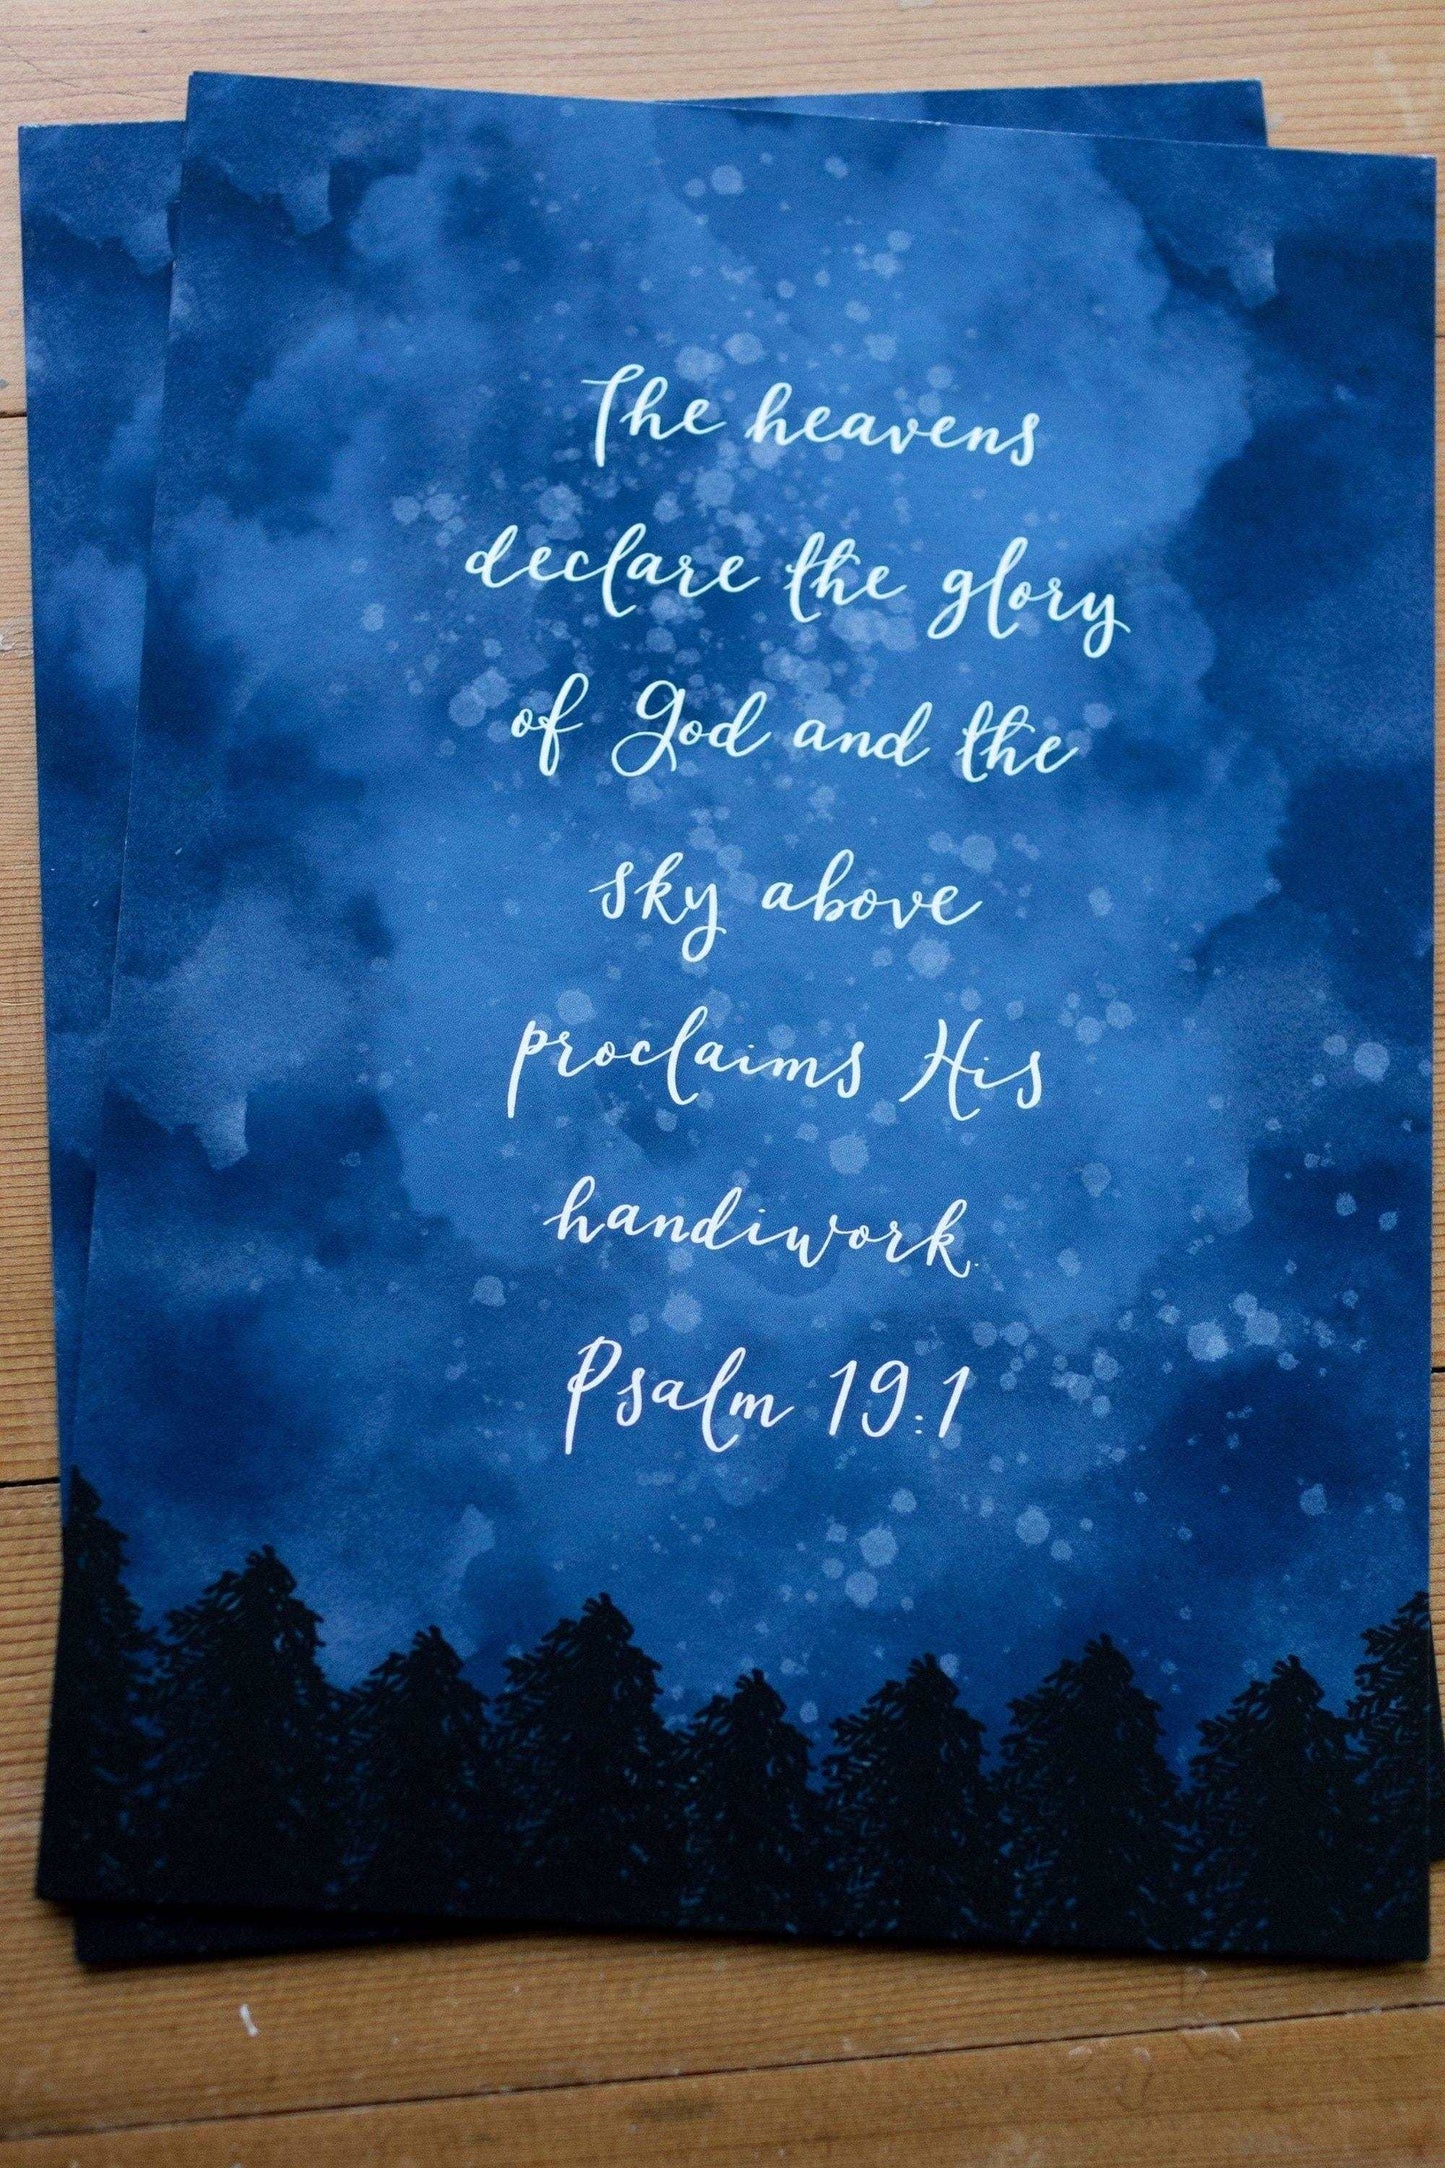 The heavens
declare the glory
of God and the
sky above
proclaims His
handiwork.
Psalm 19:1